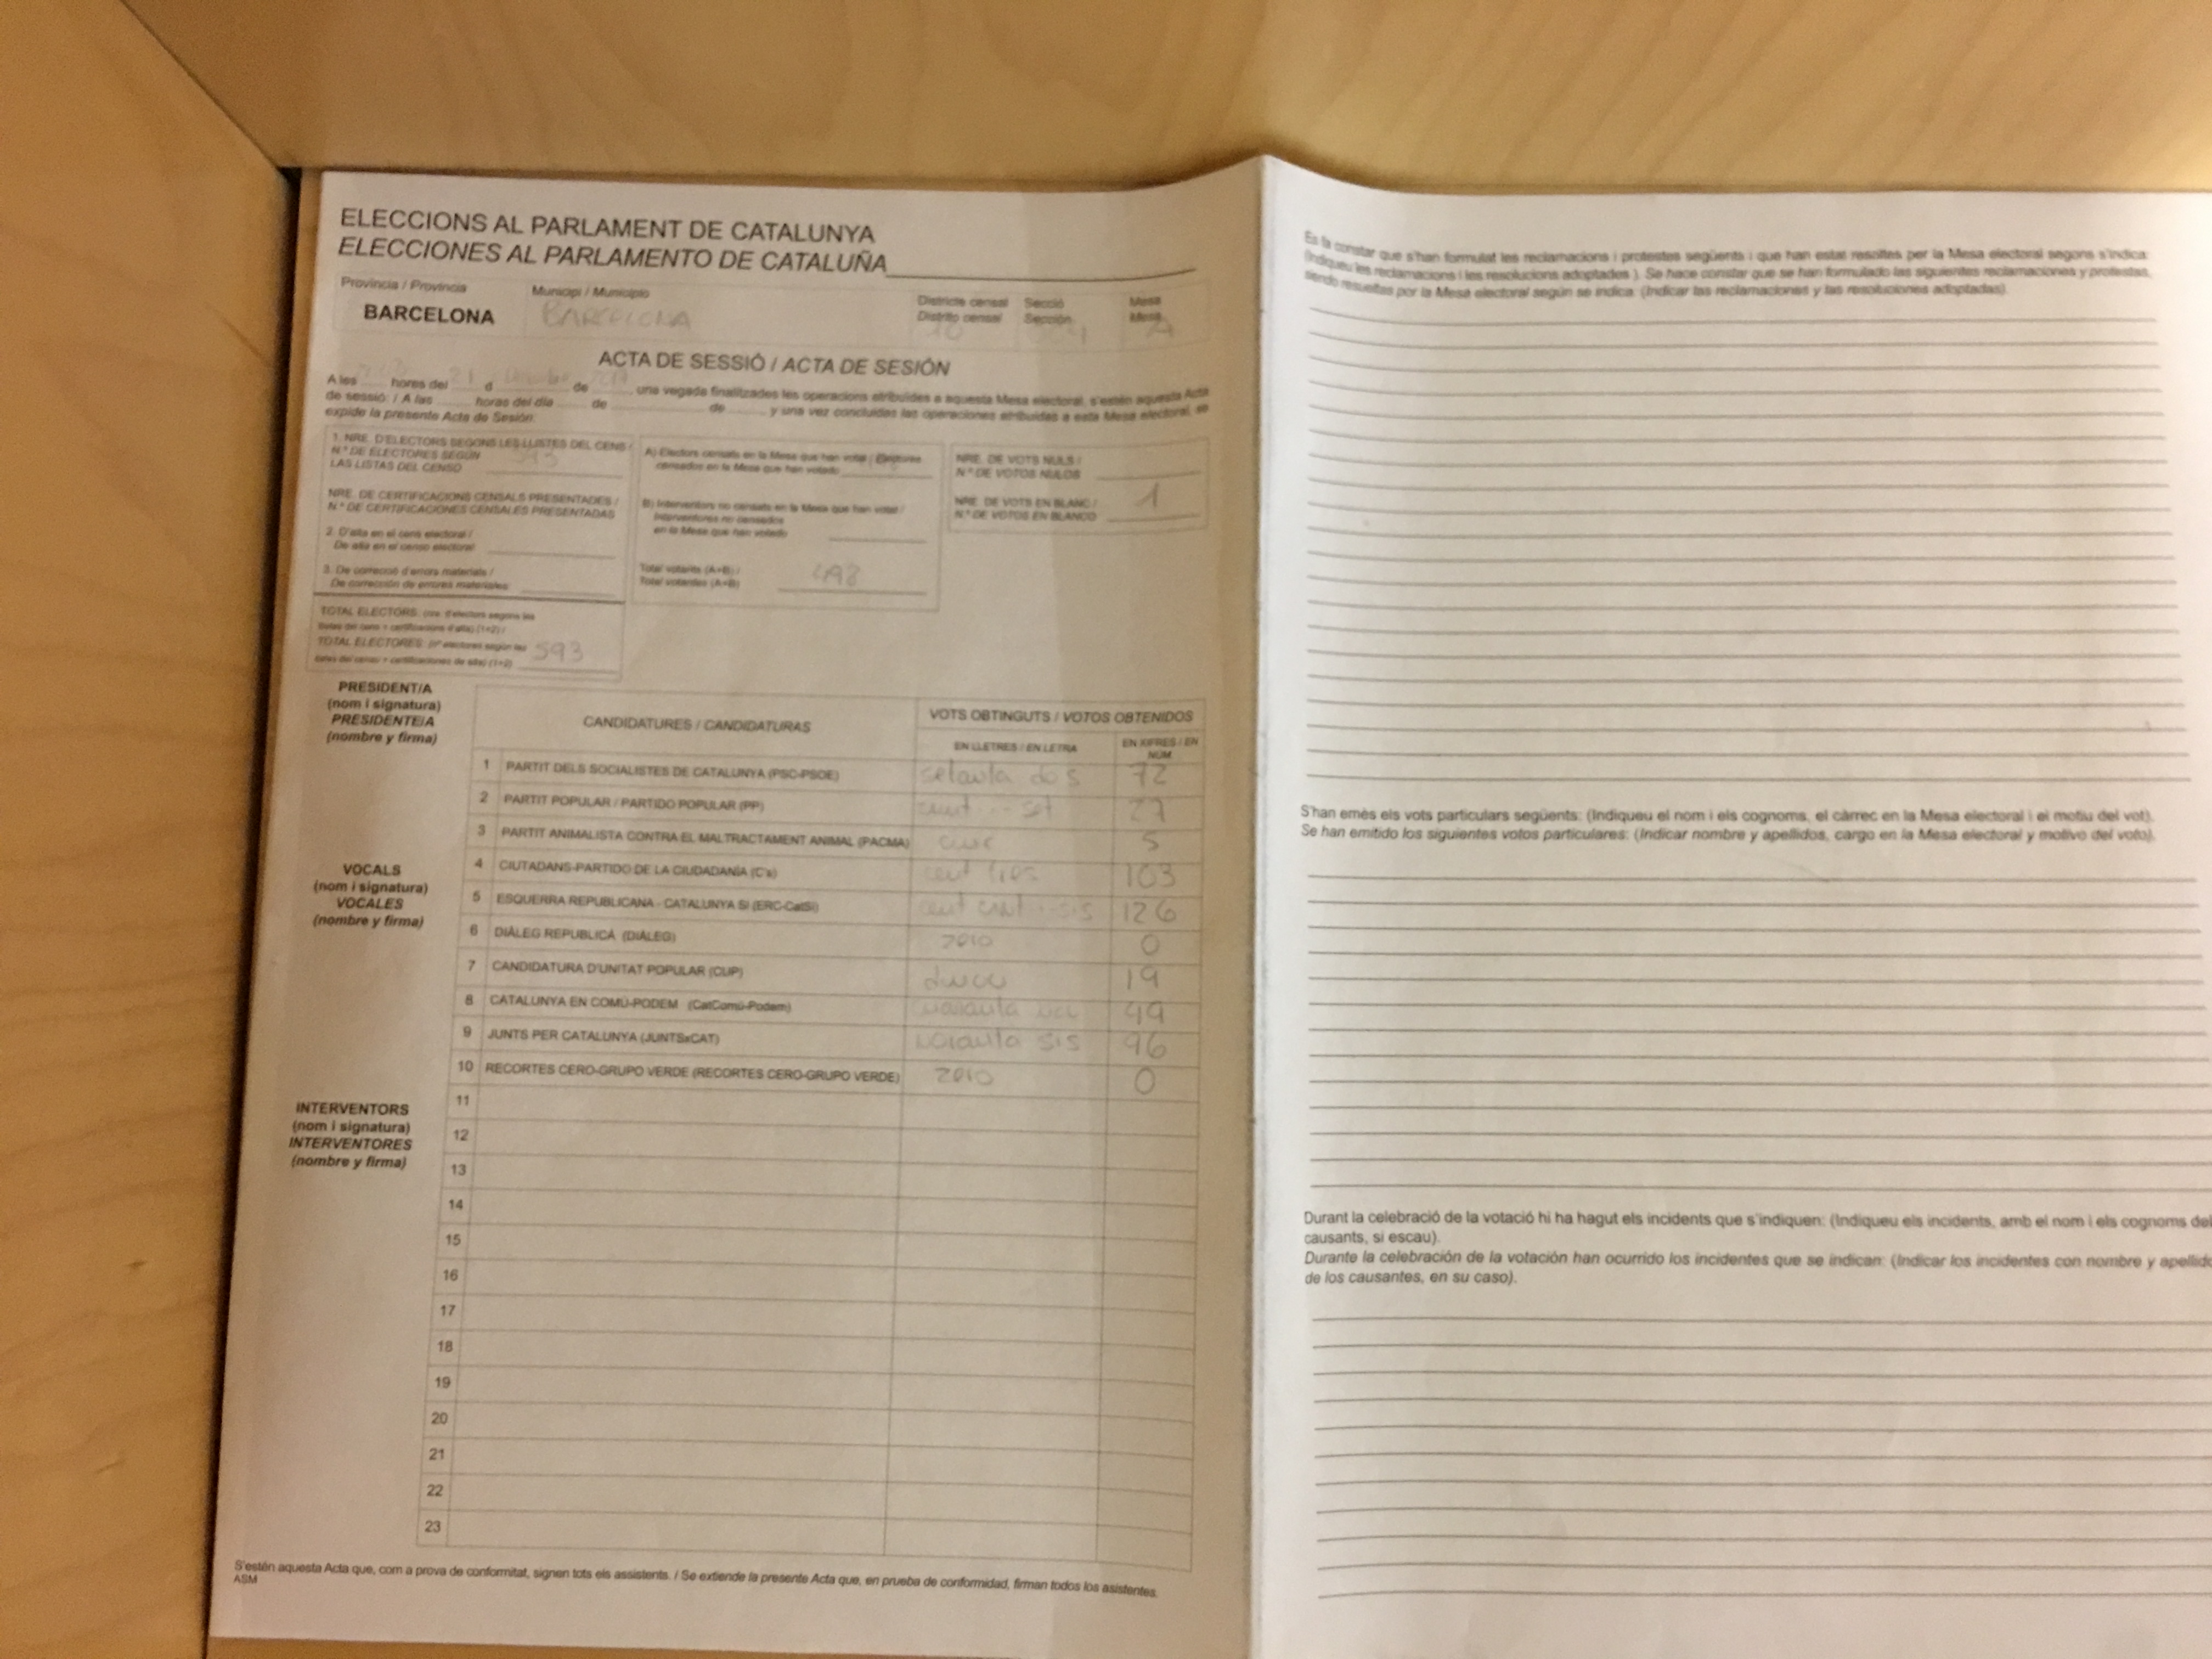 ELECCIONS AL PARLAMENT DE CATALUNYA
ELECCIONES AL PARLAMENTO DE CATALUÑA
Província / Provincia
Municipi / Municipio
Districte censal
Distrito censal
Secció
Sección
Mesa
Mesa
BARCELONA
BARCELONA
10
A
ACTA DE SESSIÓ / ACTA DE SESIÓN
A les hores del 21 d de una vegada finalitzades les operacions atribuïdes a aquesta Mesa electoral, s'estén aquesta Acta
de sessió: / A las horas del día de de y una vez concluidas las operaciones atribuidas a esta Mesa electoral, se
expide la presente Acta de Sesión:
1. NRE. D'ELECTORS SEGONS LES LLISTES DEL CENS /
N.º DE ELECTORES SEGÚN
LAS LISTAS DEL CENSO
593
NRE. DE CERTIFICACIONS CENSALS PRESENTADES /
N.º DE CERTIFICACIONES CENSALES PRESENTADAS
2. D'alta en el cens electoral /
De alta en el censo electoral:
3. De correcció d'errors materials /
De corrección de errores materiales:
TOTAL ELECTORS: (nre. d'electors segons les
llistes del cens + certificacions d'alta) (1+2) /
TOTAL ELECTORES: (nº electores según las
listas del censo + certificaciones de alta) (1+2)
593
A) Electors censats en la Mesa que han votat / Electores
censados en la Mesa que han votado
B) Interventors no censats en la Mesa que han votat /
Interventores no censados
en la Mesa que han votado
Total votants (A+B) /
Total votantes (A+B)
498
NRE. DE VOTS NULS /
N.º DE VOTOS NULOS
NRE. DE VOTS EN BLANC /
N.º DE VOTOS EN BLANCO
1
PRESIDENT/A
(nom i signatura)
PRESIDENTE/A
(nombre y firma)
VOCALS
(nom i signatura)
VOCALES
(nombre y firma)
INTERVENTORS
(nom i signatura)
INTERVENTORES
(nombre y firma)
CANDIDATURES / CANDIDATURAS
VOTS OBTINGUTS / VOTOS OBTENIDOS
EN LLETRES / EN LETRA
EN XIFRES / EN
NÚM
1 PARTIT DELS SOCIALISTES DE CATALUNYA (PSC-PSOE) setanta dos 72
2 PARTIT POPULAR / PARTIDO POPULAR (PP) set 27
3 PARTIT ANIMALISTA CONTRA EL MALTRACTAMENT ANIMAL (PACMA) cinc 5
4 CIUTADANS-PARTIDO DE LA CIUDADANÍA (C's) cent tres 103
5 ESQUERRA REPUBLICANA - CATALUNYA SÍ (ERC-CatSí) cent vint-i-sis 126
6 DIÀLEG REPUBLICÀ (DIÀLEG) zero 0
7 CANDIDATURA D'UNITAT POPULAR (CUP) 19
8 CATALUNYA EN COMÚ-PODEM (CatComú-Podem) 49
9 JUNTS PER CATALUNYA (JUNTSxCAT) noranta sis 96
10 RECORTES CERO-GRUPO VERDE (RECORTES CERO-GRUPO VERDE) zero 0
11
12
13
14
15
16
17
18
19
20
21
22
23
S'estén aquesta Acta que, com a prova de conformitat, signen tots els assistents. / Se extiende la presente Acta que, en prueba de conformidad, firman todos los asistentes.
ASM
Es fa constar que s'han formulat les reclamacions i protestes següents i que han estat resoltes per la Mesa electoral segons s'indica:
(Indiqueu les reclamacions i les resolucions adoptades ). Se hace constar que se han formulado las siguientes reclamaciones y protestas,
siendo resueltas por la Mesa electoral según se indica: (Indicar las reclamaciones y las resoluciones adoptadas).
S'han emès els vots particulars següents: (Indiqueu el nom i els cognoms, el càrrec en la Mesa electoral i el motiu del vot).
Se han emitido los siguientes votos particulares: (Indicar nombre y apellidos, cargo en la Mesa electoral y motivo del voto).
Durant la celebració de la votació hi ha hagut els incidents que s'indiquen: (Indiqueu els incidents, amb el nom i els cognoms del
causants, si escau).
Durante la celebración de la votación han ocurrido los incidentes que se indican: (Indicar los incidentes con nombre y apellido
de los causantes, en su caso).